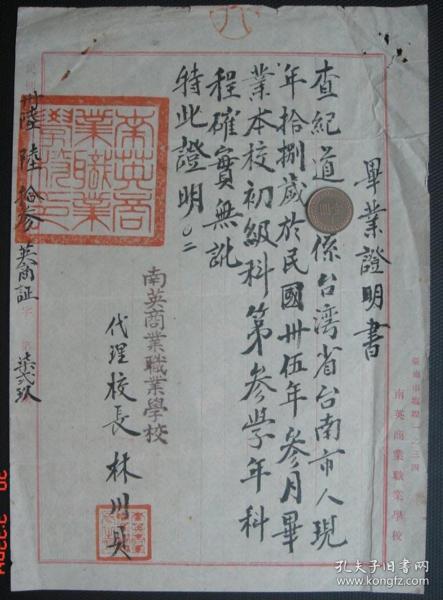 畢業證明書
查紀道 係台湾省台南市人現
年拾捌歲於民國卅伍年叁月畢
業本校初級科第叁學年科
程確實無訛
特此證明
南英商業職業學校
代理校長 林川貝
南英商業職業學校
南英商
業職業
卅陸 陸 拾叁 英商証
孔夫子旧书网
www.kongfz.com